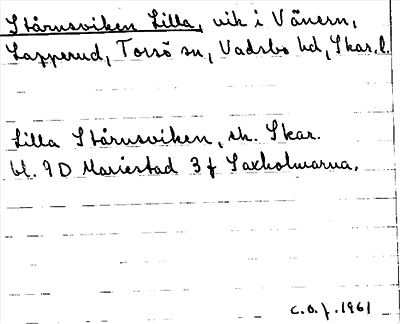 Stårnsviken Lilla, vik i Vänern,
Lapperud, Torsö sn, Vadsbo hd, Skar. l.
Lilla Stårnsviken, ek. Skar.
bl. 9D Mariestad 3 f Laxholmarna.
C.O.f. 1961